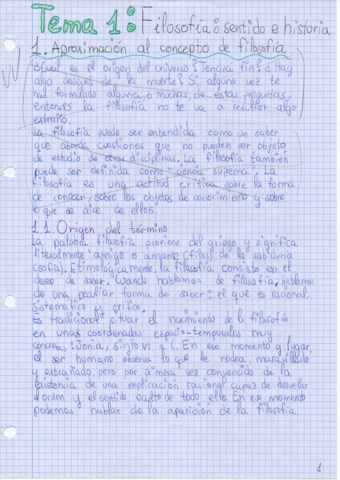 Tema 1: Filosofía: sentido e historia
1. Aproximación al concepto de filosofía
¿Cual es el origen del universo? ¿Tendrá fin? ¿Hay
algo después de la muerte? Si alguna vez te
has formulado alguna o muchas de estas preguntas,
entonces la filosofía no te va a resultar algo
extraño.
La filosofía puede ser entendida como un saber
que aborda cuestiones que no pueden ser objeto
de estudio de otras disciplinas. La filosofía también
puede ser definida como "ciencia suprema". La
filosofía es una actitud crítica sobre la forma
de conocer, sobre los objetos de conocimiento y sobre
lo que se dice de ellos.
1.1. Origen del término
La palabra filosofía proviene del griego y significa
literalmente amigo o amante (filos) de la sabiduría
(sofía). Etimologicamente, la filosofía consiste en el
deseo de saber. Cuando hablamos de filosofía, hablamos
de una peculiar forma de saber: el que es racional,
sistemático y crítico.
Es tradicional situar el nacimiento de la filosofía
en unas coordenadas espacio-temporales muy
concretas: Jonia, siglo VI a.C. En ese momento y lugar,
el ser humano observa lo que le rodea, maravillado
y extrañado, pero por primera vez convencido de la
existencia de una explicación racional capaz de desvelar
el orden y el sentido oculto de todo ello. En ese momento
podemos hablar de la aparición de la filosofía.
1